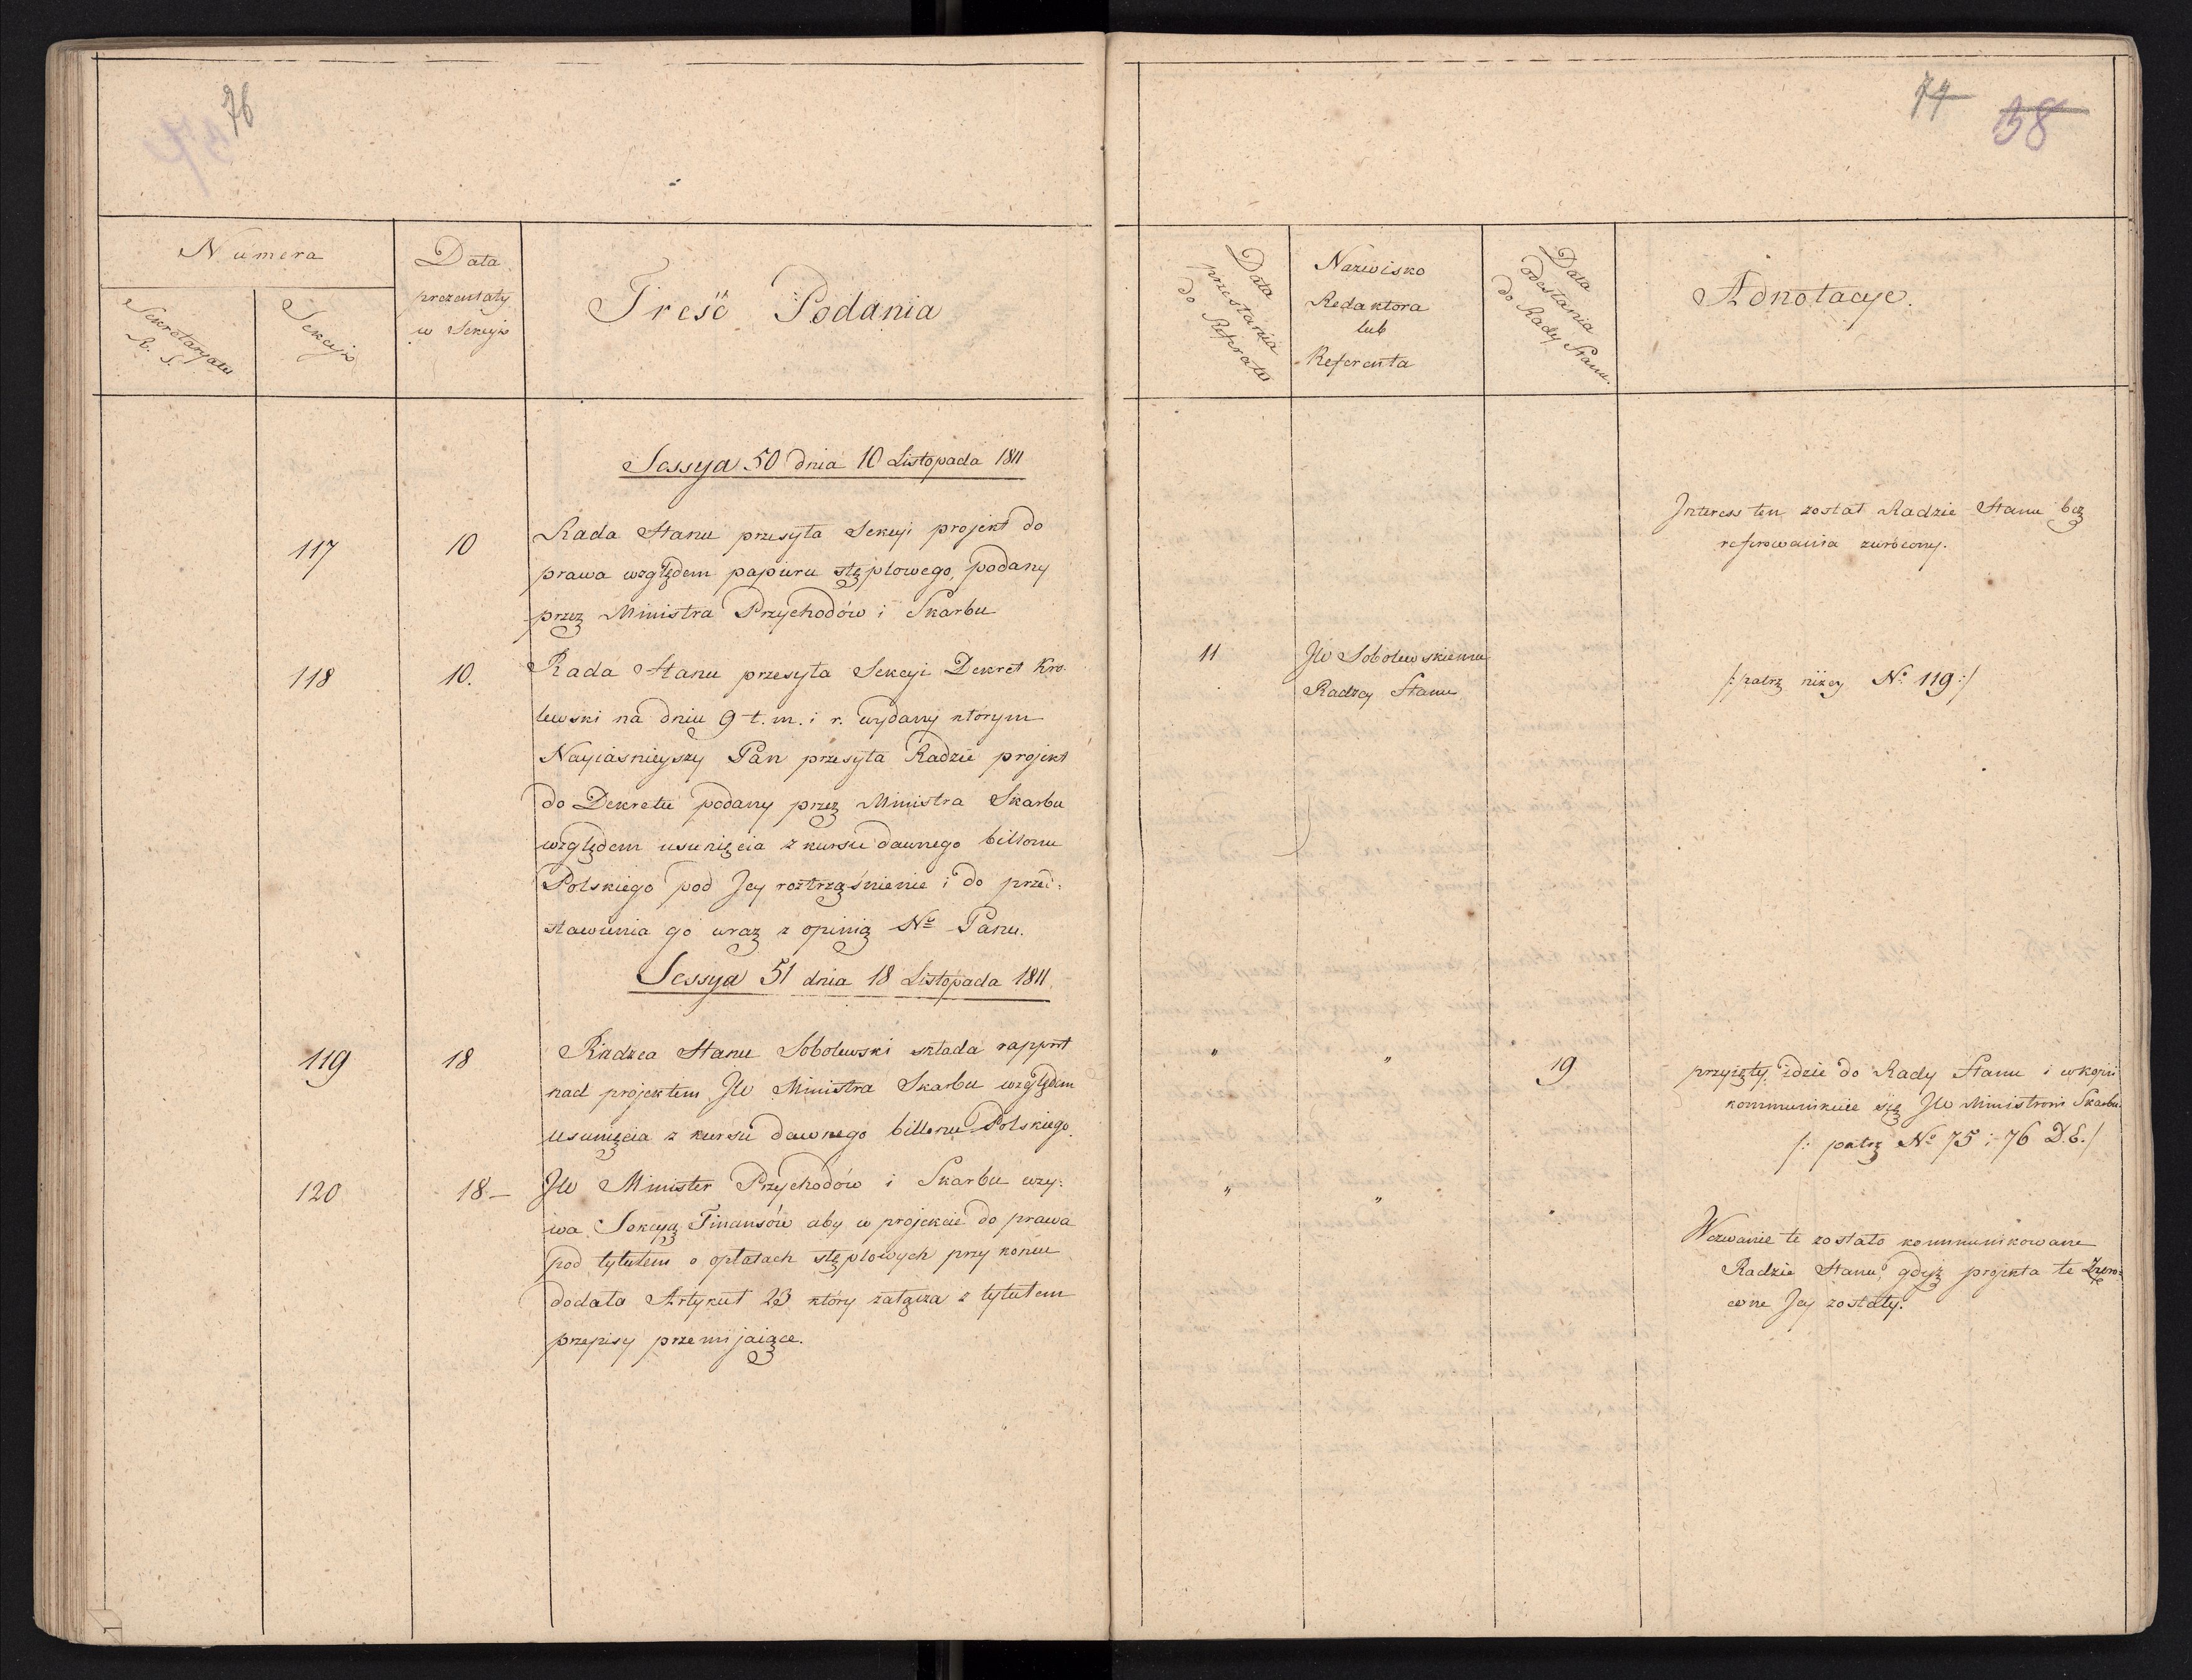 76
74 58
Numera
Sekretaryatu
R. S.
Sekcyi
Data
prezentaty
w Sekcyi
Treść Podania
Data
przesłania
do Referatu
Nazwisko
Redaktora
lub
Referenta
Data
odesłania
do Rady Stanu.
Adnotacye.
Sessya 50 dnia 10 Listopada 1811
117 10 Rada Stanu przesyła Sekcyi projekt do
prawa względem papieru stęplowego, podany
przez Ministra Przychodów i Skarbu
Interess ten został Radzie Stanu bez
referowania zwrócony.
118 10. Rada Stanu przesyła Sekcyi Dekret Kro-
lewski na dniu 9 t. m. i r. wydany ktorym
Nayiaśnieyszy Pan przesyła Radzie projekt
do Dekretu podany przez Ministra Skarbu
względem usunięcia z kursu dawnego billonu
Polskiego pod Jey roztrząśnienie i do przed:
stawienia go wraz z opinią No Panu.
11 JW Sobolewskiemu
Radzcy Stanu
/: patrz niżey No 119 :/
Sessya 51 dnia 18 Listopada 1811.
119 18 Radzca Stanu Sobolewski składa rapport
nad projektem JW Ministra Skarbu względem
usunięcia z kursu dawnego billonu Polskiego.
" " 19 przyięty, idzie do Rady Stanu i w kopii
kommunikuie się JW Ministrowi Skarbu.
/: patrz No 75 i 76 D.E. /
120 18.— JW Minister Przychodów i Skarbu wzy:
wa Sekcyą Finansów aby w projekcie do prawa
pod tytułem o opłatach stęplowych przy końcu
dodała Artykuł 23 który załącza z tytułem
przepisy przemijaiące.
" "
Wezwanie te zostało kommunikowane
Radzie Stanu, gdyż projekta te zwro:
cone Jey zostały.